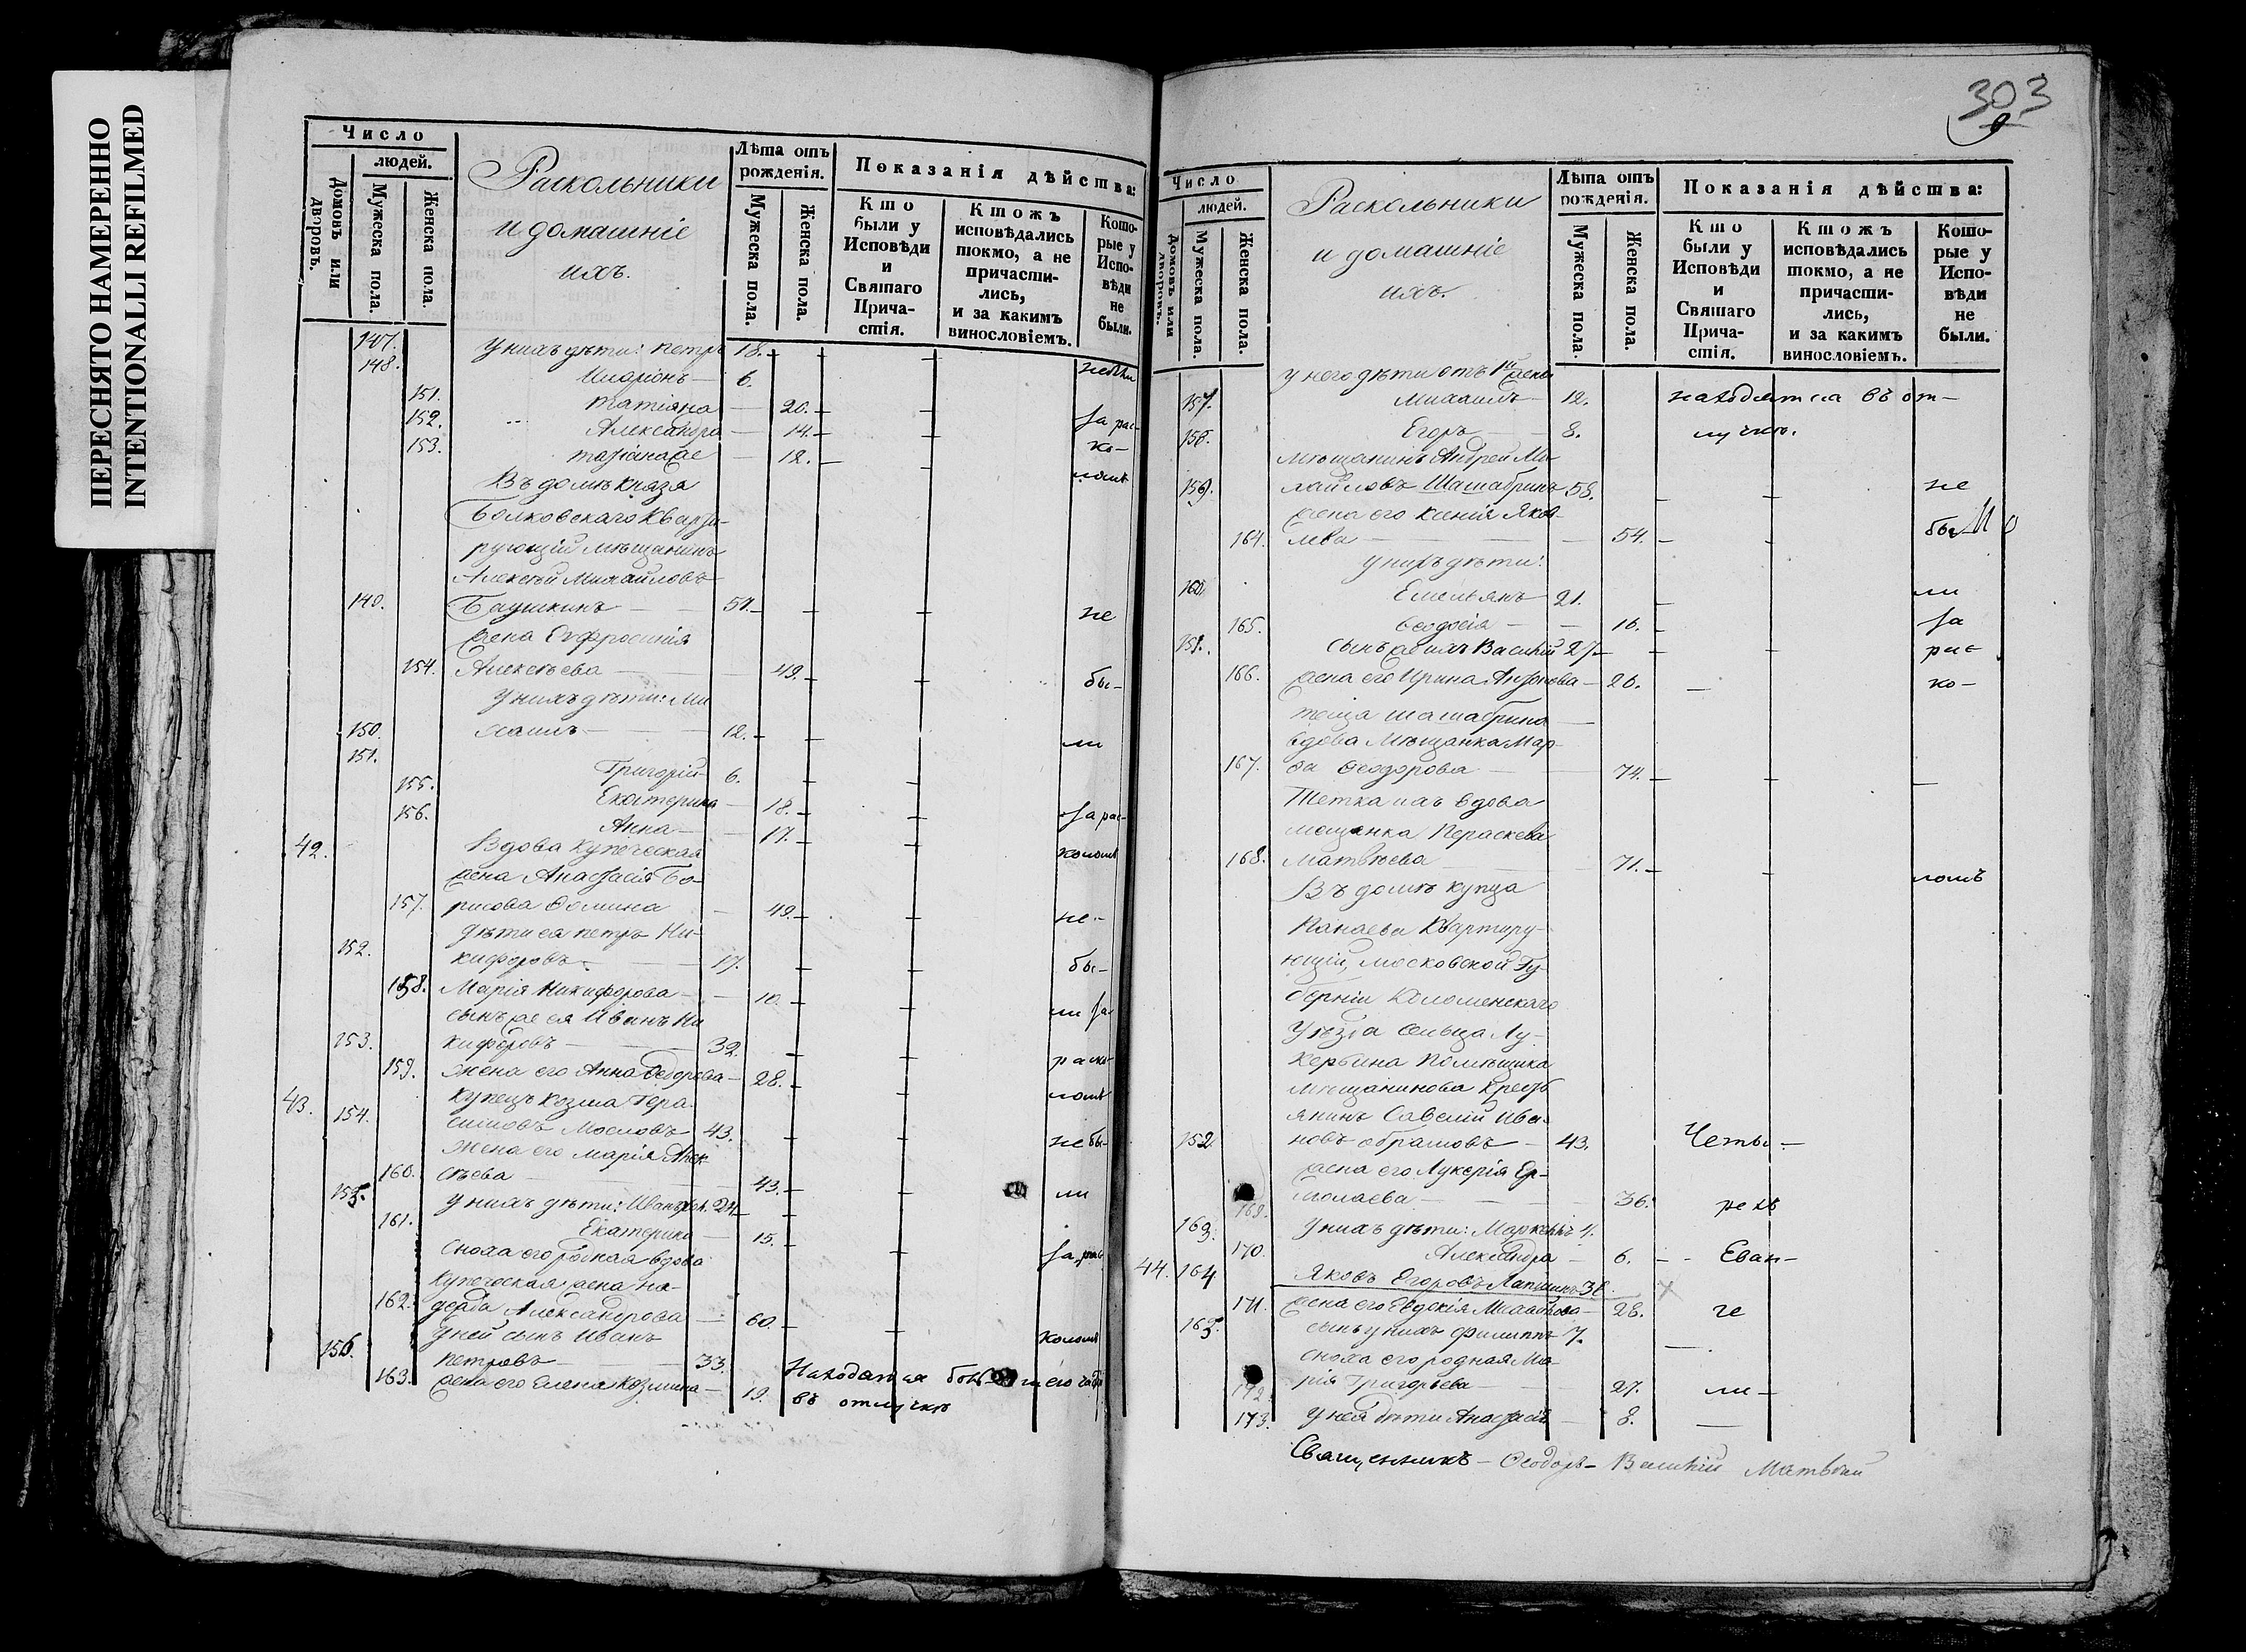 ПЕРЕСНЯТО НАМЕРЕННО
INTENTIONALLI REFILMED
Число
людей.
Домовъ или дворовъ.
Мужеска пола.
Женска пола.
Раскольники
и домашніе
ихъ.
Лѣта отъ рожденія.
Мужеска пола.
Женска пола.
Показанія дѣйства:
Кто были у Исповѣди и Святаго Прича-стія.
Ктожъ исповѣдались токмо, а не причасти-лись, и за какимъ винословіемъ.
Кото-рые у Испо-вѣди не были.
147. у нихъ дѣти: Петръ 18.
148. Иларіонъ 6. небыли
151. Татіана 20.
152. Александра 14. за рас-
153. Татіана же 12. ко-
Въ домѣ Князя ломъ
Болковскаго Кварти-
рующій мѣщанинъ
Алексѣй Михайловъ
140. Баушкинъ 51. не
жена Евфросинія
154. Алексѣева 49. бы-
у нихъ дѣти: Ми
150. хаилъ 12. ли
151. Григорій 6.
155. Екатерина 18. за рас-
156. Анна 17.
42. Вдова Купеческая коломъ
жена Анастасія Бо-
157. рисова Ѳомина 49. не-
дѣти ея Петръ Ни-
152. кифоровъ 17. бы-
158. Марія Никифорова 10.
сынъ же ея Иванъ Ни ли за
153. кифоровъ 32.
159. жена его Анна Ѳедорова 28. раско-
43. Купецъ Козма Гера- ломъ
154. симовъ Мословъ 43. не бы-
жена его Марія Алек-
160. сѣева 43. ли
155. у нихъ дѣти: Иванъ 24
161. Екатерина 15.
сноха его родная вдова за рас
Купеческая жена На-
162. дежда Александрова 60.
у ней сынъ Иванъ коломъ
156. Петровъ 33.
163. жена его Елена Козмина 19. Находятся
въ отлучкѣ
303
9
Число
людей.
Домовъ или дворовъ.
Мужеска пола.
Женска пола.
Раскольники
и домашніе
ихъ.
Лѣта отъ рожденія.
Мужеска пола.
Женска пола.
Показанія дѣйства:
Кто были у Исповѣди и Святаго Прича-стія.
Ктожъ исповѣдались токмо, а не причасти-лись, и за какимъ винословіемъ.
Кото-рые у Испо-вѣди не были.
у него дѣти отъ 1й жены
157. Михаилъ 12. находятся въ от-
158. Егоръ 8. лучкѣ.
мѣщанинъ Андрей Ми-
159. хайловъ Шашабринъ 58. не
жена его Ксенія Яков-
164. лева 54. бы
у нихъ дѣти:
160. Емельянъ 21. ли
165. Ѳеодосія 16. за
151. сынъ же ихъ Василій 27. рас
166. жена его Ирина Антонова 26. ко-
теща Шашабрина
вдова Мѣщанка Мар-
167. ѳа Ѳеодорова 74.
Тетка ихъ вдова
мещанка Параскева
168. Матвѣева 71.
Въ домѣ купца ломъ
Панаева Квартиру-
ющій, Московской Гу-
берніи Коломенскаго
Уѣзда сельца Лу-
керьина Помѣщика
Мѣщанинова Кресть
янинъ Савелій Ива-
152. новъ Абрамовъ 43. Четы-
жена его Лукерія Ер-
169. молаева 36. рехъ
163. у нихъ дѣти: Маркелъ 4.
170. Александра 6. Еван-
44. 164 Яковъ Егоровъ Лапшинъ 36.
171. жена его Евдокія Михайлова 28. ге
165. сынъ у нихъ Филиппъ 7.
сноха его родная Ма-
172. рія Григорьева 27. ли-
173. у нея дѣти Анастасія 8.
Священникъ – Ѳеодоръ – Василій Матвѣй